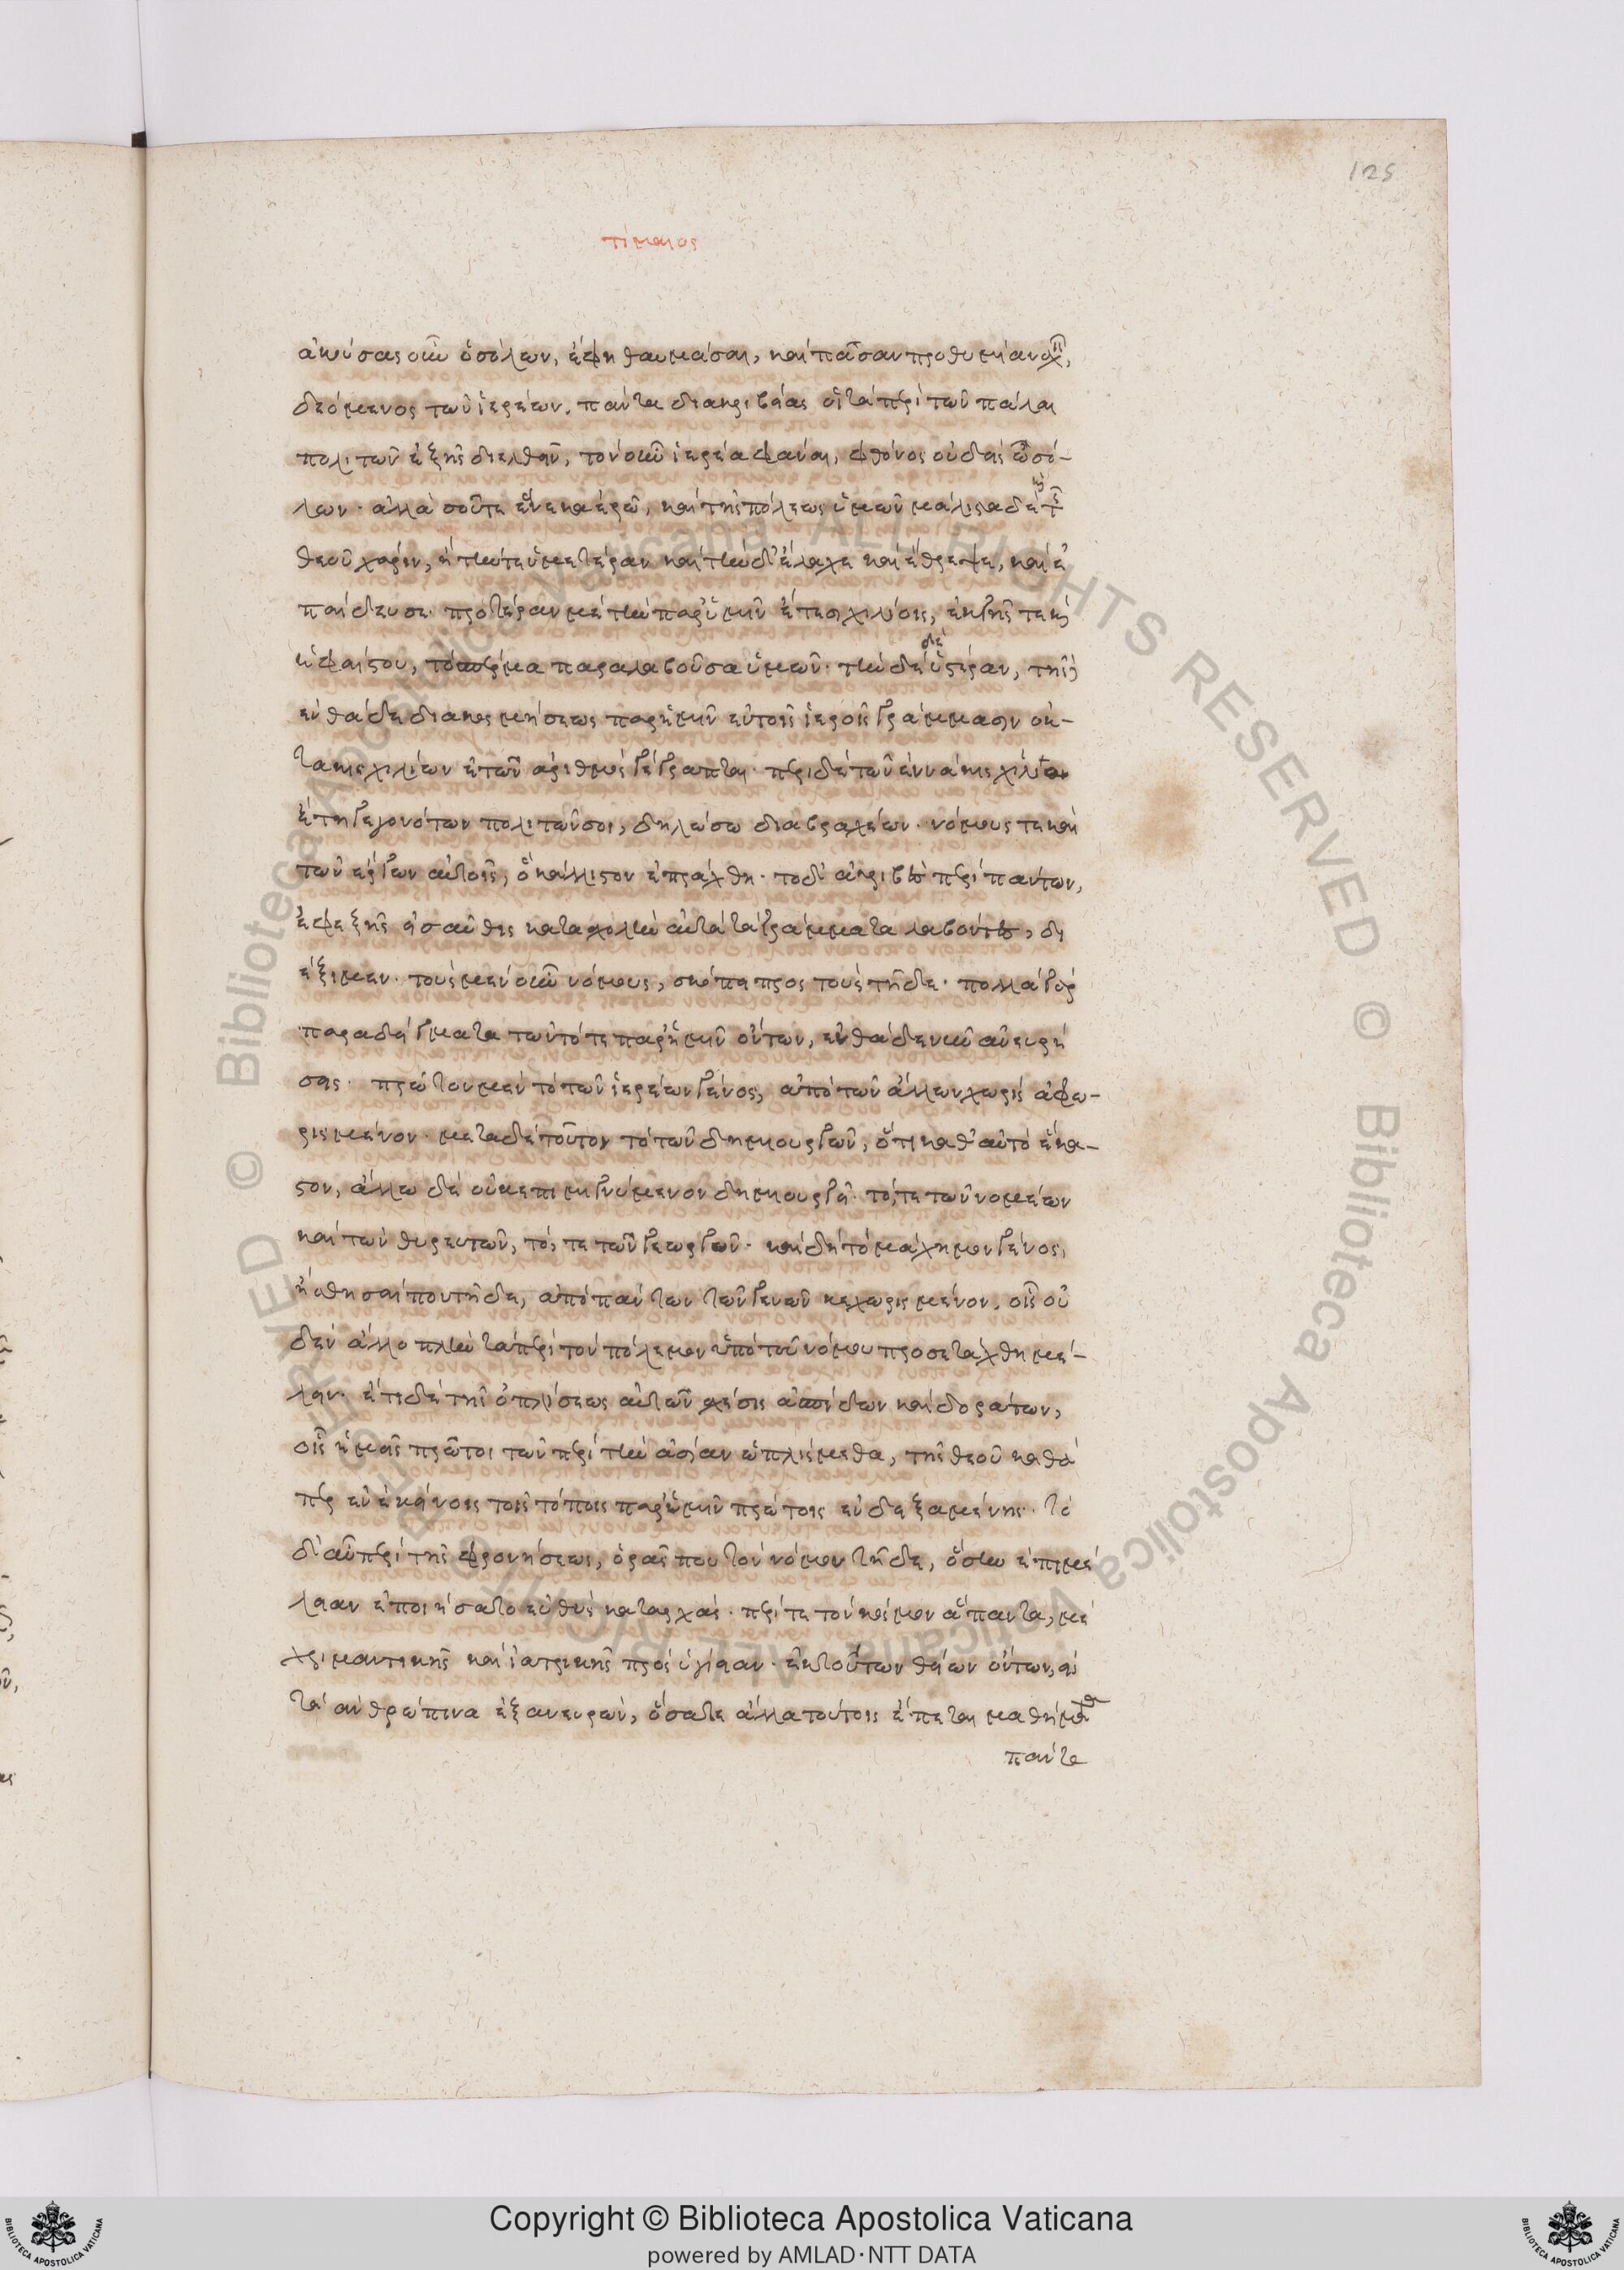 125
τίμαιος
ἀκούσας οὖν ὁ σόλων, ἔφη θαυμάσαι, καὶ πᾶσαν προθυμίαν σχεῖν,
δεόμενος τῶν ἱερέων, πάντα διακριβείας οἱ τὰ περὶ τῶν πάλαι
πολιτῶν ἑξῆς διελθεῖν, τὸν οὖν ἱερέα φάναι, φθόνος οὐδεὶς ὦ σό-
λων· ἀλλὰ σοῦ τε ἕνεκα ἐρῶ, καὶ τῆς πόλεως ὑμῶν μάλιστα δὲ καὶ τῆς
θεοῦ χάριν, ἣ τήν τε ὑμετέραν καὶ τήνδ' ἔλαχε καὶ ἔθρεψε, καὶ ἐ
παίδευσε· προτέραν μὲν τὴν παρ' ὑμῖν ἔτεσι χιλίοις, ἐκ γῆς τε καὶ
ἡφαίστου, τὸ σπέρμα παραλαβοῦσα ὑμῶν· τὴν δὲ ὑστέραν, τῆς δὲ
ἐνθάδε διακοσμήσεως παρ' ἡμῖν ἐν τοῖς ἱεροῖς γράμμασιν ὀκ-
τακισχιλίων ἐτῶν ἀριθμὸς γέγραπται· περὶ δὲ τῶν ἐννάκις χίλια
ἔτη γεγονότων πολιτῶν σοι, δηλώσω διὰ βραχέων· νόμους τε καὶ
τῶν ἔργων αὐτοῖς, ὃ κάλλιστον ἐπράχθη· τὸ δ' ἀκριβὲς περὶ πάντων,
ἐφεξῆς εἰσαῦθις κατὰ σχολὴν αὐτὰ τὰ γράμματα λαβόντες, δι
έξιμεν· τοὺς μὲν οὖν νόμους, σκόπει πρὸς τοὺς τῇδε· πολλὰ γὰρ
παραδείγματα τῶν τότε παρ' ἡμῖν ὄντων, ἐνθάδε νῦν ἀνευρή
σεις· πρῶτον μὲν τὸ τῶν ἱερέων γένος, ἀπὸ τῶν ἄλλων χωρὶς ἀφω-
ρισμένον· μετὰ δὲ τοῦτον τὸ τῶν δημιουργῶν, ὅτι καθ' αὑτὸ ἕκα-
στον, ἄλλω δὲ οὐκ ἐπιμιγνύμενον δημιουργεῖ· τό, τε τῶν νομέων
καὶ τῶν θηρευτῶν, τό, τε τῶν γεωργῶν· καὶ δὴ τὸ μάχιμον γένος,
ἤσθησαί που τῇδε, ἀπὸ πάντων τῶν γενῶν κεχωρισμένον, οἷς οὐ
δὲν ἄλλο πλὴν τὰ περὶ τὸν πόλεμον ὑπὸ τοῦ νόμου προσετάχθη μέ-
λειν· ἔτι δὲ τῆς ὁπλίσεως αὐτῶν σχέσις ἀσπίδων καὶ δοράτων,
οἷς ἡμεῖς πρῶτοι τῶν περὶ τὴν ἀσίαν ὡπλίσμεθα, τῆς θεοῦ καθά
περ ἐν ἐκείνοις τοῖς τόποις παρ' ὑμῖν πρώτοις ἐνδειξαμένης· τὸ
δ' αὖ περὶ τῆς φρονήσεως, ὁρᾶς που τὸν νόμον τῇδε, ὅσην ἐπιμέ
λειαν ἐποιήσατο εὐθὺς κατ' ἀρχάς· περί τε τὸν κόσμον ἅπαντα, μέ
χρι μαντικῆς καὶ ἰατρικῆς πρὸς ὑγίειαν· ἐκ τούτων θείων ὄντων, εἰς
τὰ ἀνθρώπινα ἐξανευρών, ὅσα τε ἄλλα τούτοις ἕπεται μαθήματα
πάντα
Copyright © Biblioteca Apostolica Vaticana
powered by AMLAD·NTT DATA